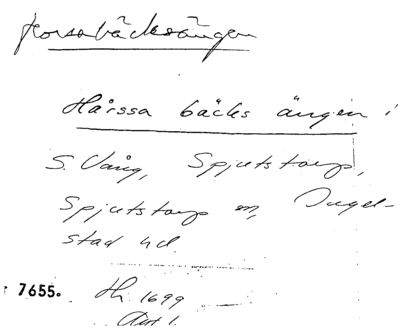 Horsabäcksängen
Hårssa bäcks ängen i
S. Vång, Spjutstorp,
Spjutstorp sn, Ingel-
stad hd.
7655. Jb. 1699
Avt 1.